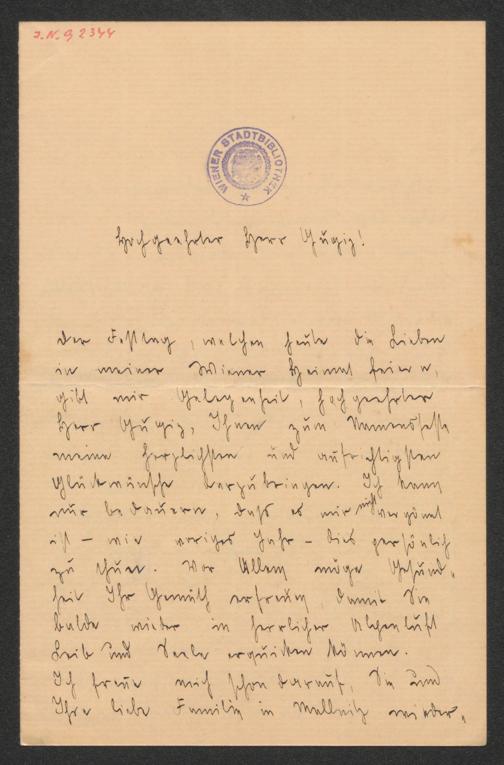 J. N. 92344
WIENER STADTBIBLIOTHEK
Hochgeehrter Herr Gugiz!
Der Festtag, welchen heute die Lieben
in meiner Wiener Heimat feiern,
gibt mir Gelegenheit, hochgeehrter
Herr Gugiz, Ihnen zum Namensfeste
meine herzlichsten und aufrichtigsten
Glückwünsche darzubringen. Ich kann
nur bedauern, daß es mir nicht vergönnt
ist – wie voriges Jahr – dies persönlich
zu thuen. Vor Allem möge Gesund-
heit Ihr Gemüth erfreuen, damit Sie
balde wieder in herrlicher Alpenluft
Leib und Seele erquicken können.
Ich freue mich schon darauf, Sie und
Ihre liebe Familie in Mallnitz wieder-